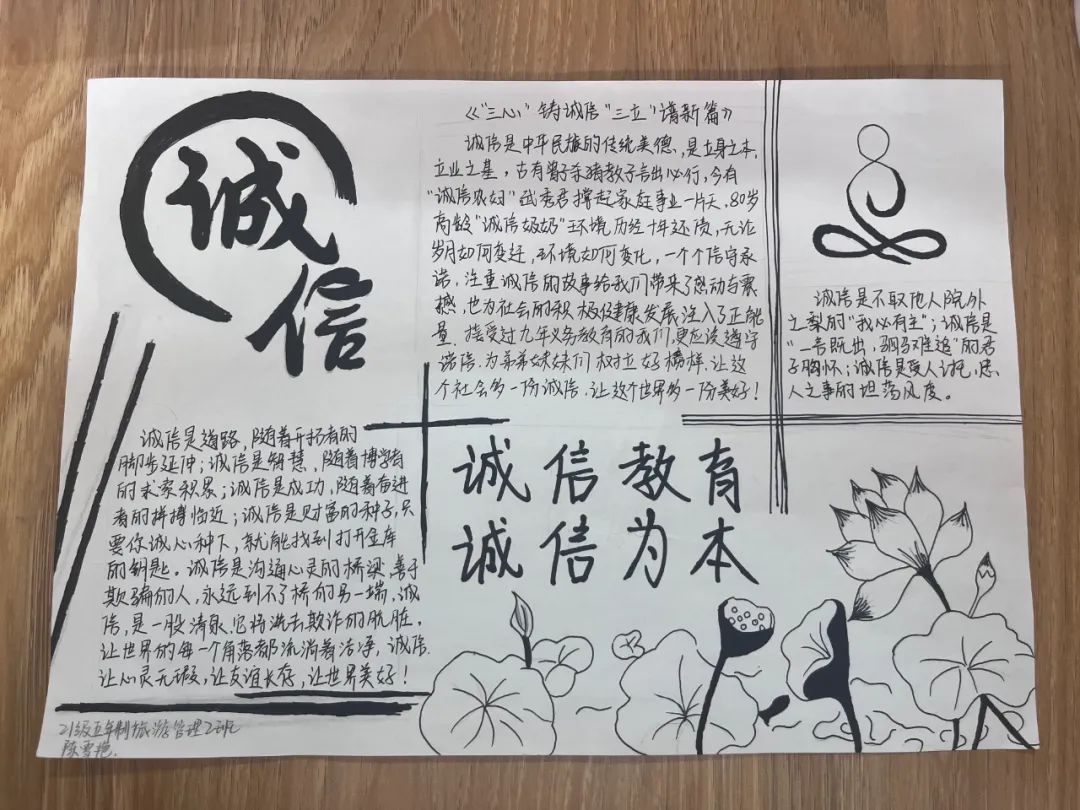 诚信
《“三心”铸诚信“三立”谱新篇》
诚信是中华民族的传统美德，是立身之本，
立业之基，古有曾子杀猪教子言出必行，今有
“诚信农妇”武秀君撑起家庭事业一片天，80岁
高龄“诚信奶奶”环境历经十年还债，无论
岁月如何变迁，环境如何变化，一个个信守承
诺，注重诚信的故事给我们带来了感动与震
撼，也为社会的积极健康发展注入了正能
量。接受过九年义务教育的我们，更应该遵守
诺信，为弟弟妹妹们树立好榜样，让这
个社会多一份诚信，让这个世界多一份美好！
诚信是不取他人院外
之梨的“我心有主”；诚信是
“一言既出，驷马难追”的君
子胸怀；诚信是受人之托，忠
人之事的坦荡风度。
诚信是道路，随着开拓者的
脚步延伸；诚信是智慧，随着博学者
的求索积累；诚信是成功，随着奋进
者的拼搏临近；诚信是财富的种子，只
要你诚心种下，就能找到打开金库
的钥匙。诚信是沟通心灵的桥梁，善于
欺骗的人，永远到不了桥的另一端，诚
信，是一股清泉，它将洗去欺诈的肮脏，
让世界的每一个角落都流淌着洁净，诚信，
让心灵无瑕，让友谊长存，让世界美好！
诚信教育
诚信为本
21级五年制旅游管理2班
陈雪艳